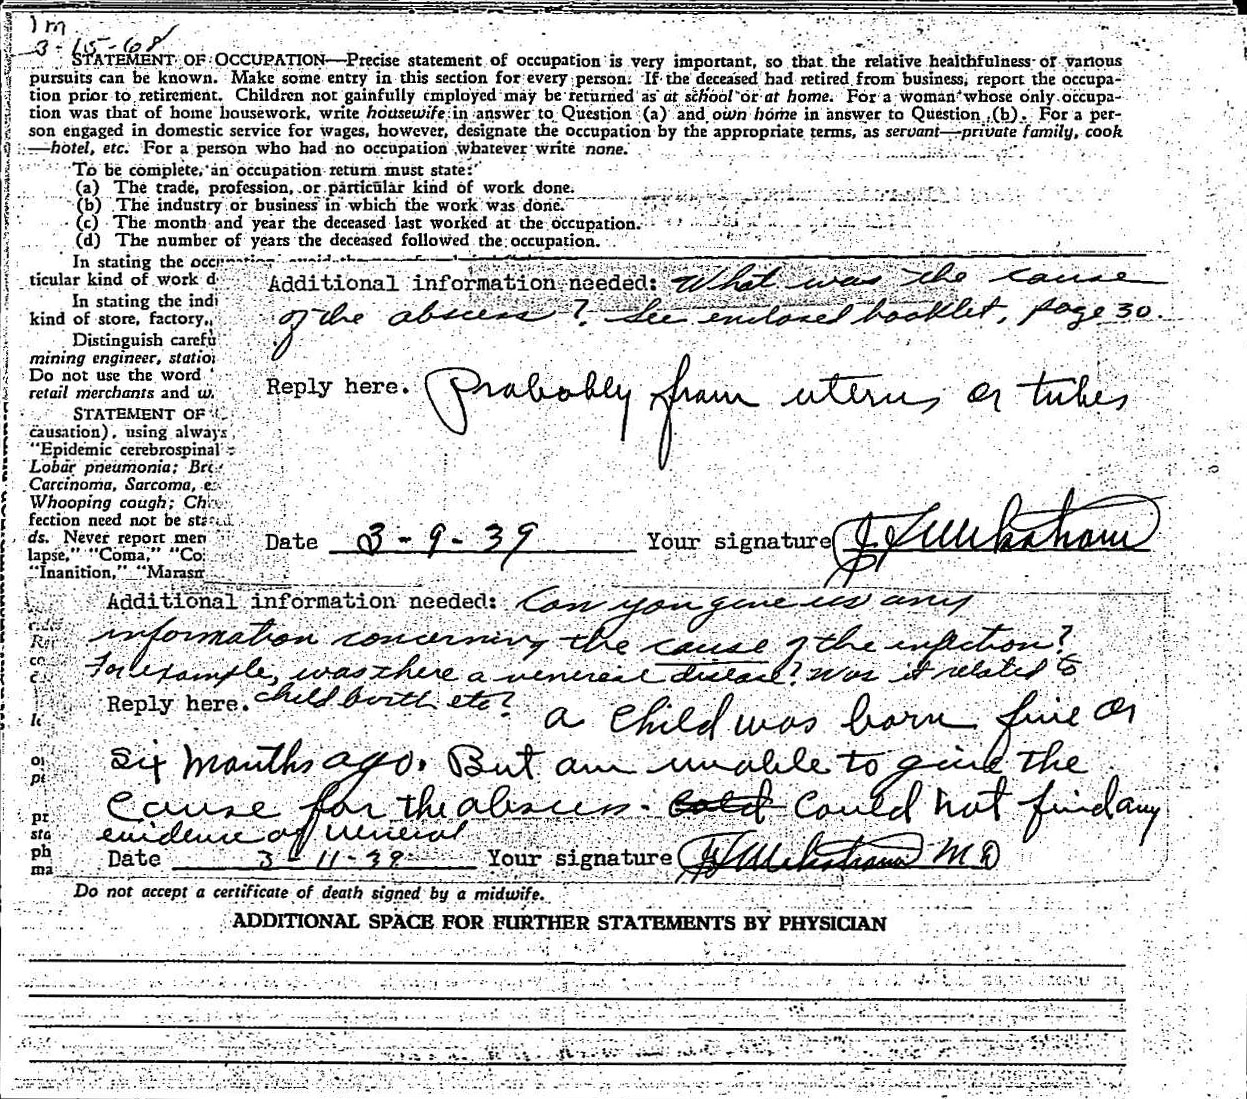 1m
3-15-68
STATEMENT OF OCCUPATION—Precise statement of occupation is very important, so that the relative healthfulness of various
pursuits can be known. Make some entry in this section for every person. If the deceased had retired from business, report the occupa-
tion prior to retirement. Children not gainfully employed may be returned as at school or at home. For a woman whose only occupa-
tion was that of home housework, write housewife in answer to Question (a) and own home in answer to Question (b). For a per-
son engaged in domestic service for wages, however, designate the occupation by the appropriate terms, as servant—private family, cook
—hotel, etc. For a person who had no occupation whatever write none.
To be complete, an occupation return must state:
(a) The trade, profession, or particular kind of work done.
(b) The industry or business in which the work was done.
(c) The month and year the deceased last worked at the occupation.
(d) The number of years the deceased followed the occupation.
In stating the
ticular kind of work d
In stating the indi
kind of store, factory,
Distinguish carefu
mining engineer, statio
Do not use the word
retail merchants and w
STATEMENT OF
causation), using always
"Epidemic cerebrospinal
Lobar pneumonia; Br
Carcinoma, Sarcoma, e
Whooping cough; Ch
fection need not be sta
ds. Never report men
lapse," "Coma," "Co
"Inanition," "Marasm
Additional information needed: What was the cause
of the abscess? See enclosed booklet, page 30.
Reply here. Probably from uterus or tubes
Date 3-9-39 Your signature
Additional information needed: Can you give us any
information concerning the cause of the infection?
For example, was there a venereal disease? Was it related to
child birth etc?
Reply here. a child was born five or
six months ago. But am unable to give the
cause for the abscess. could not find any
evidence of veneral
Date 3-11-39 Your signature M D
co
pr
sta
ph
ma
Do not accept a certificate of death signed by a midwife.
ADDITIONAL SPACE FOR FURTHER STATEMENTS BY PHYSICIAN